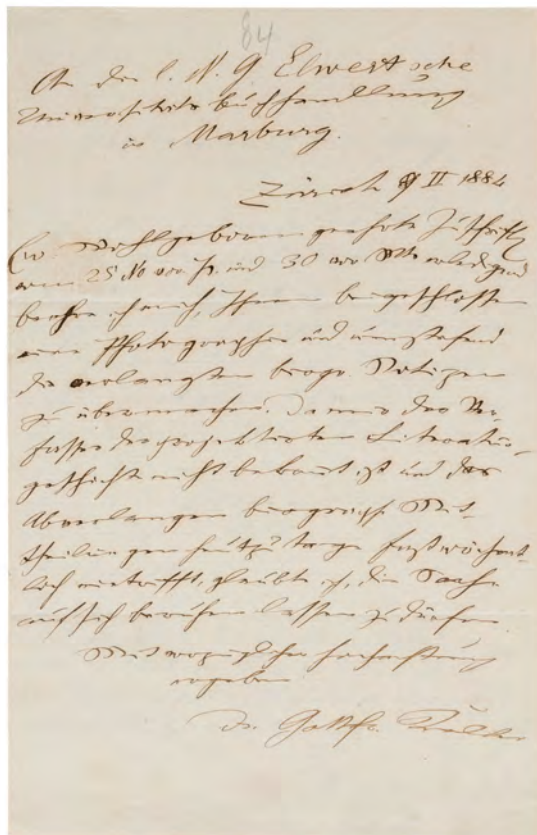 84
An die l. N. G Elwert'sche
Universitäts buchhandlung
in Marburg.
Zürich 9 II 1884
Ew. Wohlgeboren geehrte Zuschrift
vom 25 Nov vor. Js. und 30 vor. Mts erledigend
beehre ich mich, Ihnen beigeschlossen
eine Photographie und umstehend
die verlangten biogr. Notizen
zu übermachen. Da mir das Ver-
fasser der projektirten Literatur-
geschichte nicht bekannt ist und das
Abverlangen biograph. Mit-
theilungen heutzutage fast wöchent-
lich eintrifft, glaubte ich, die Sache
auf sich beruhen lassen zu dürfen.
Mit vorzüglicher Hochachtung
ergeben
Dr. Gottfr. Keller